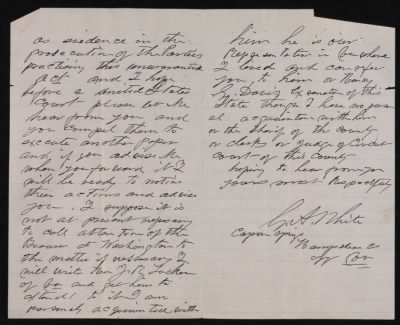 as evidence in the
prosecution of the Parties
practising this unwarranted
act and I hope
before a United States
Court please let me
hear from you and
you compel them to
execute another paper
and if you advise me
when you forward it I
will be ready to notice
their actions and advise
you. I suppose it is
not at present necessary
to call attention of the
Bureau at Washington to
the matter if necessary I
will write Hon J. R. Tucker
of Va and get him to
attend to it I am
personaly acquainted with
him he is our
Representative in Congress
I and refer
you to him or
G. Davis of this
State though I have no person
al acquaintance with him
or the Sheriff of the County
or clerk or Judge of Circuit
court of this County
hoping to hear from you
yours most Respectfully
White
Capon Springs
Hampshire C